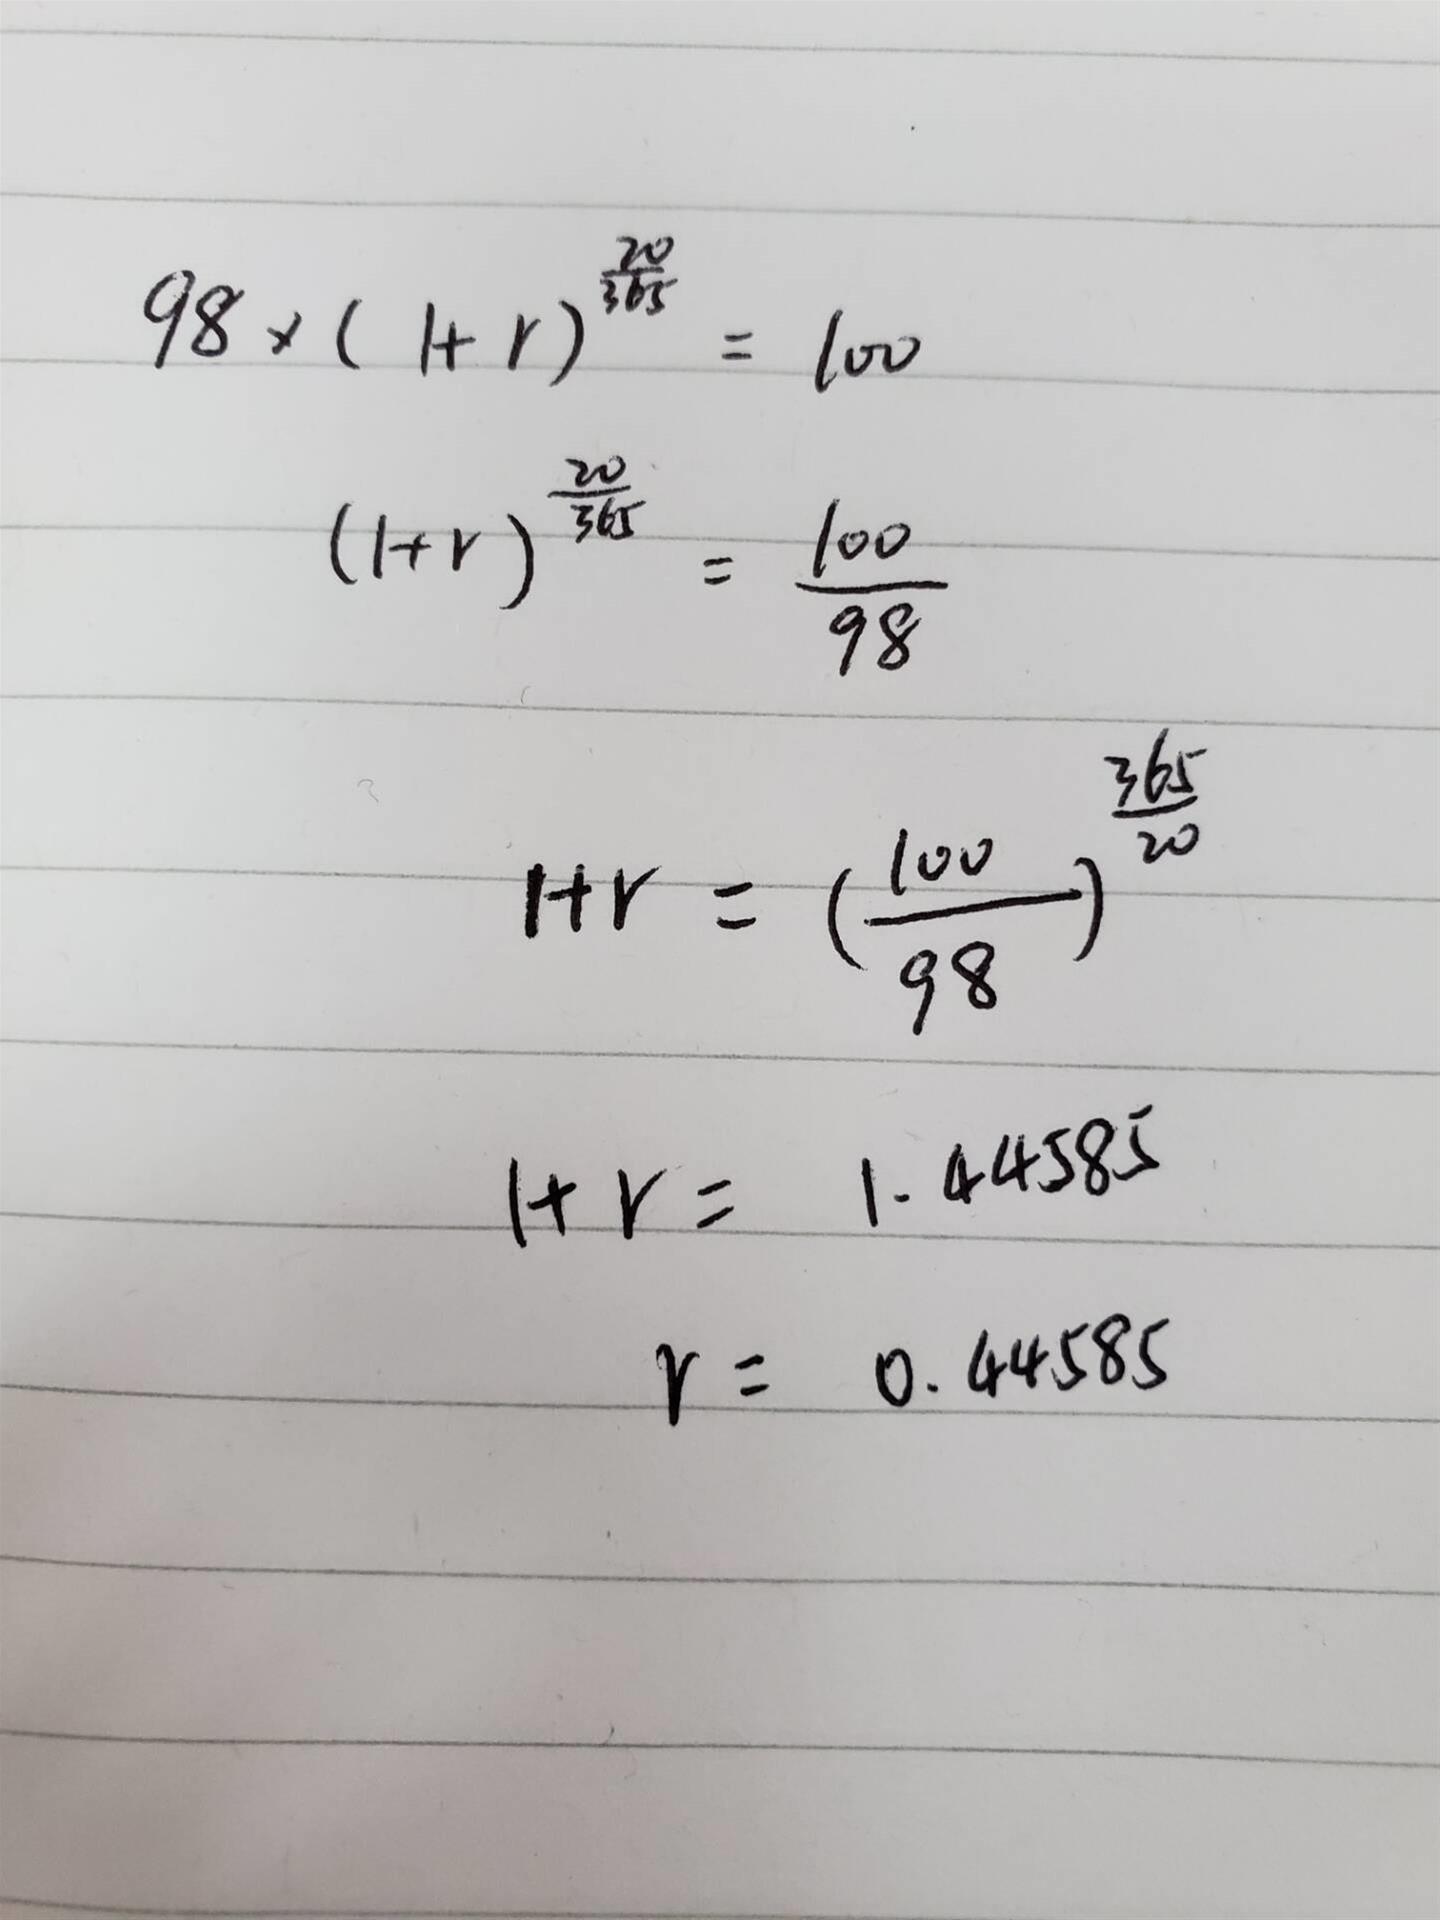 98 × (1+r)^(20/365) = 100
(1+r)^(20/365) = 100/98
1+r = (100/98)^(365/20)
1+r = 1.44585
r = 0.44585